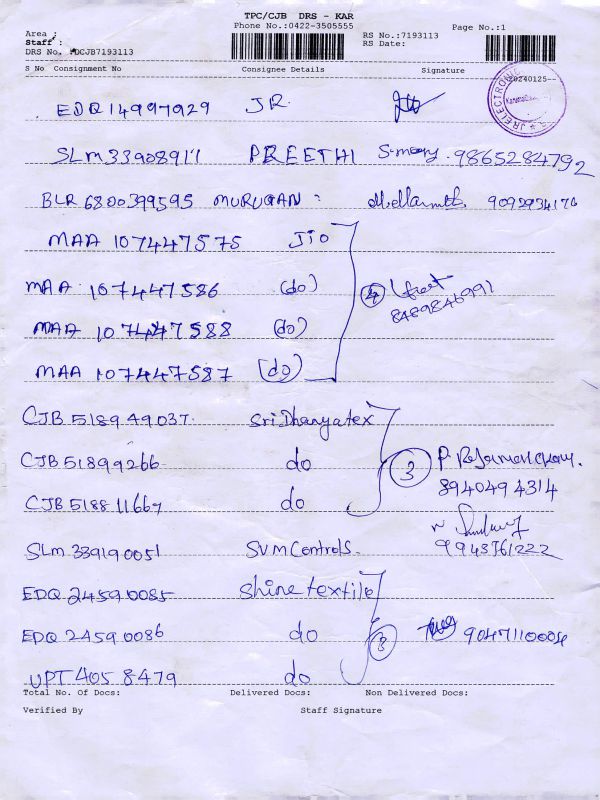 TPC/CJB DRS - KAR
Phone No.:0422-3505555
Page No.:1
Area :
Staff :
RS No.:7193113
DRS No. DCJB7193113
RS Date:
S No Consignment No Consignee Details Signature
20240125--
JR ELECTRONIC
EDQ 14997929 JR
SLM 339089117 PREETHI 9865284792
BLR 6800399595 MURUGAN :
MAA 107447575 JIO
MAA 107447586 (do) 4
8489846991
MAA 107447588 (do)
MAA 107447587 (do)
CJB 518949037. Sri Dhanyatex
CJB 51899266 do 3
8940494314
CJB 518811667 do
SLM 339190051 SVM Controls. 9943761222
EDQ 24590085 Shine textile
EDQ 24590086 do 3 90471100004
UPT 4058479 do
Total No. Of Docs: Delivered Docs: Non Delivered Docs:
Verified By Staff Signature